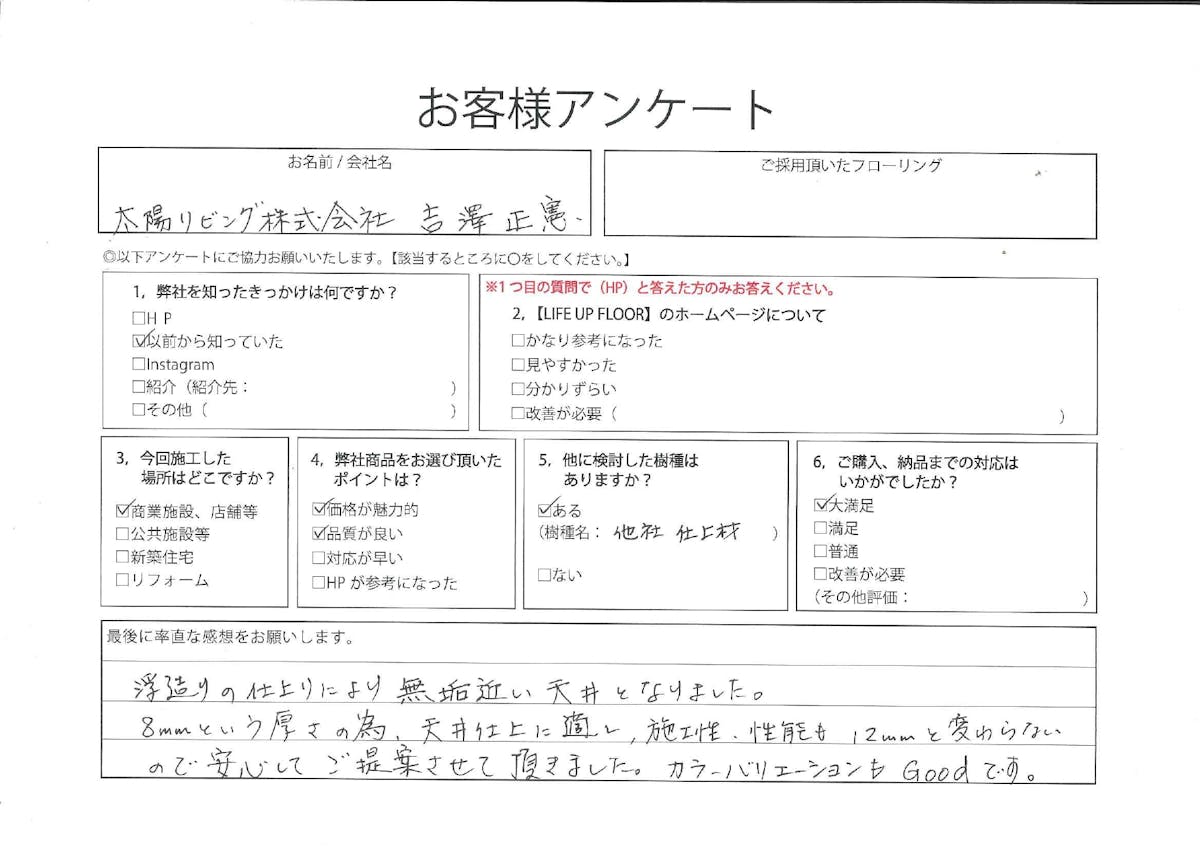 お客様アンケート
お名前 / 会社名
太陽リビング株式会社 吉澤正憲
ご採用頂いたフローリング
◎以下アンケートにご協力お願いいたします。【該当するところに〇をしてください。】
1, 弊社を知ったきっかけは何ですか？
□ＨＰ
☑以前から知っていた
□Instagram
□紹介（紹介先： ）
□その他（ ）
※1つ目の質問で（HP）と答えた方のみお答えください。
2,【LIFE UP FLOOR】のホームページについて
□かなり参考になった
□見やすかった
□分かりずらい
□改善が必要（ ）
3, 今回施工した
場所はどこですか？
☑商業施設、店舗等
□公共施設等
□新築住宅
□リフォーム
4, 弊社商品をお選び頂いた
ポイントは？
☑価格が魅力的
☑品質が良い
□対応が早い
□HP が参考になった
5, 他に検討した樹種は
ありますか？
☑ある
（樹種名： 他社 仕上材 ）
□ない
6, ご購入、納品までの対応は
いかがでしたか？
☑大満足
□満足
□普通
□改善が必要
（その他評価： ）
最後に率直な感想をお願いします。
浮造りの仕上りにより無垢近い天井となりました。
8mmという厚さの為、天井仕上に適し、施工性、性能も12mmと変わらない
ので安心してご提案させて頂きました。カラーバリエーションもGoodです。